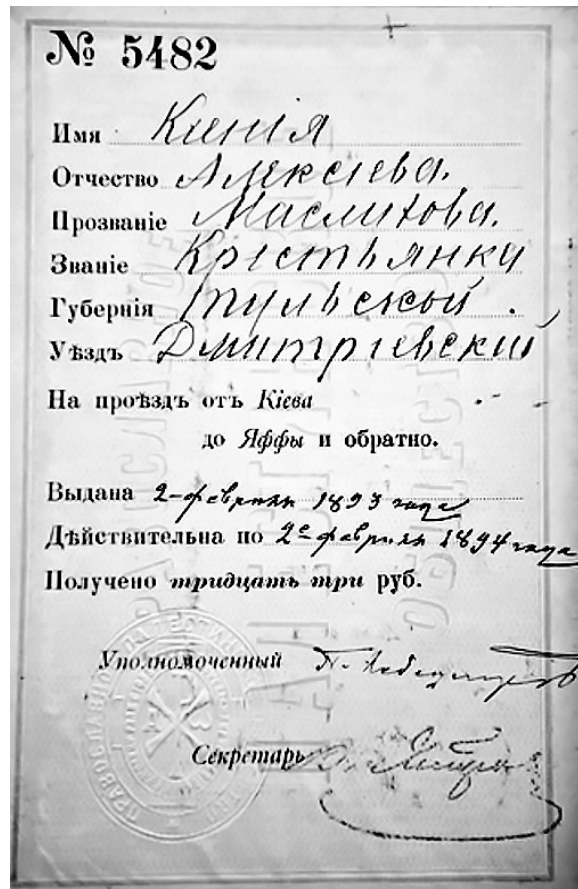 № 5482
Имя Ксенія
Отчество Алексіева.
Прозваніе Маслихова.
Званіе Крестьянка
Губернія Тульской.
Уѣздъ Дмитріевский
На проѣздъ отъ Кіева
до Яффы и обратно.
Выдана 2-февраля 1893 года
Дѣйствительна по 2е февраля 1894 года
Получено тридцать три руб.
Уполномоченный
Секретарь